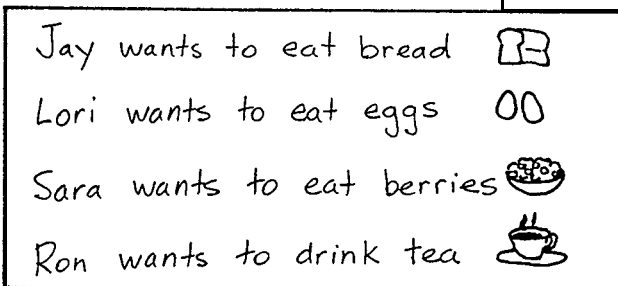 Jay wants to eat bread
Lori wants to eat eggs
Sara wants to eat berries
Ron wants to drink tea